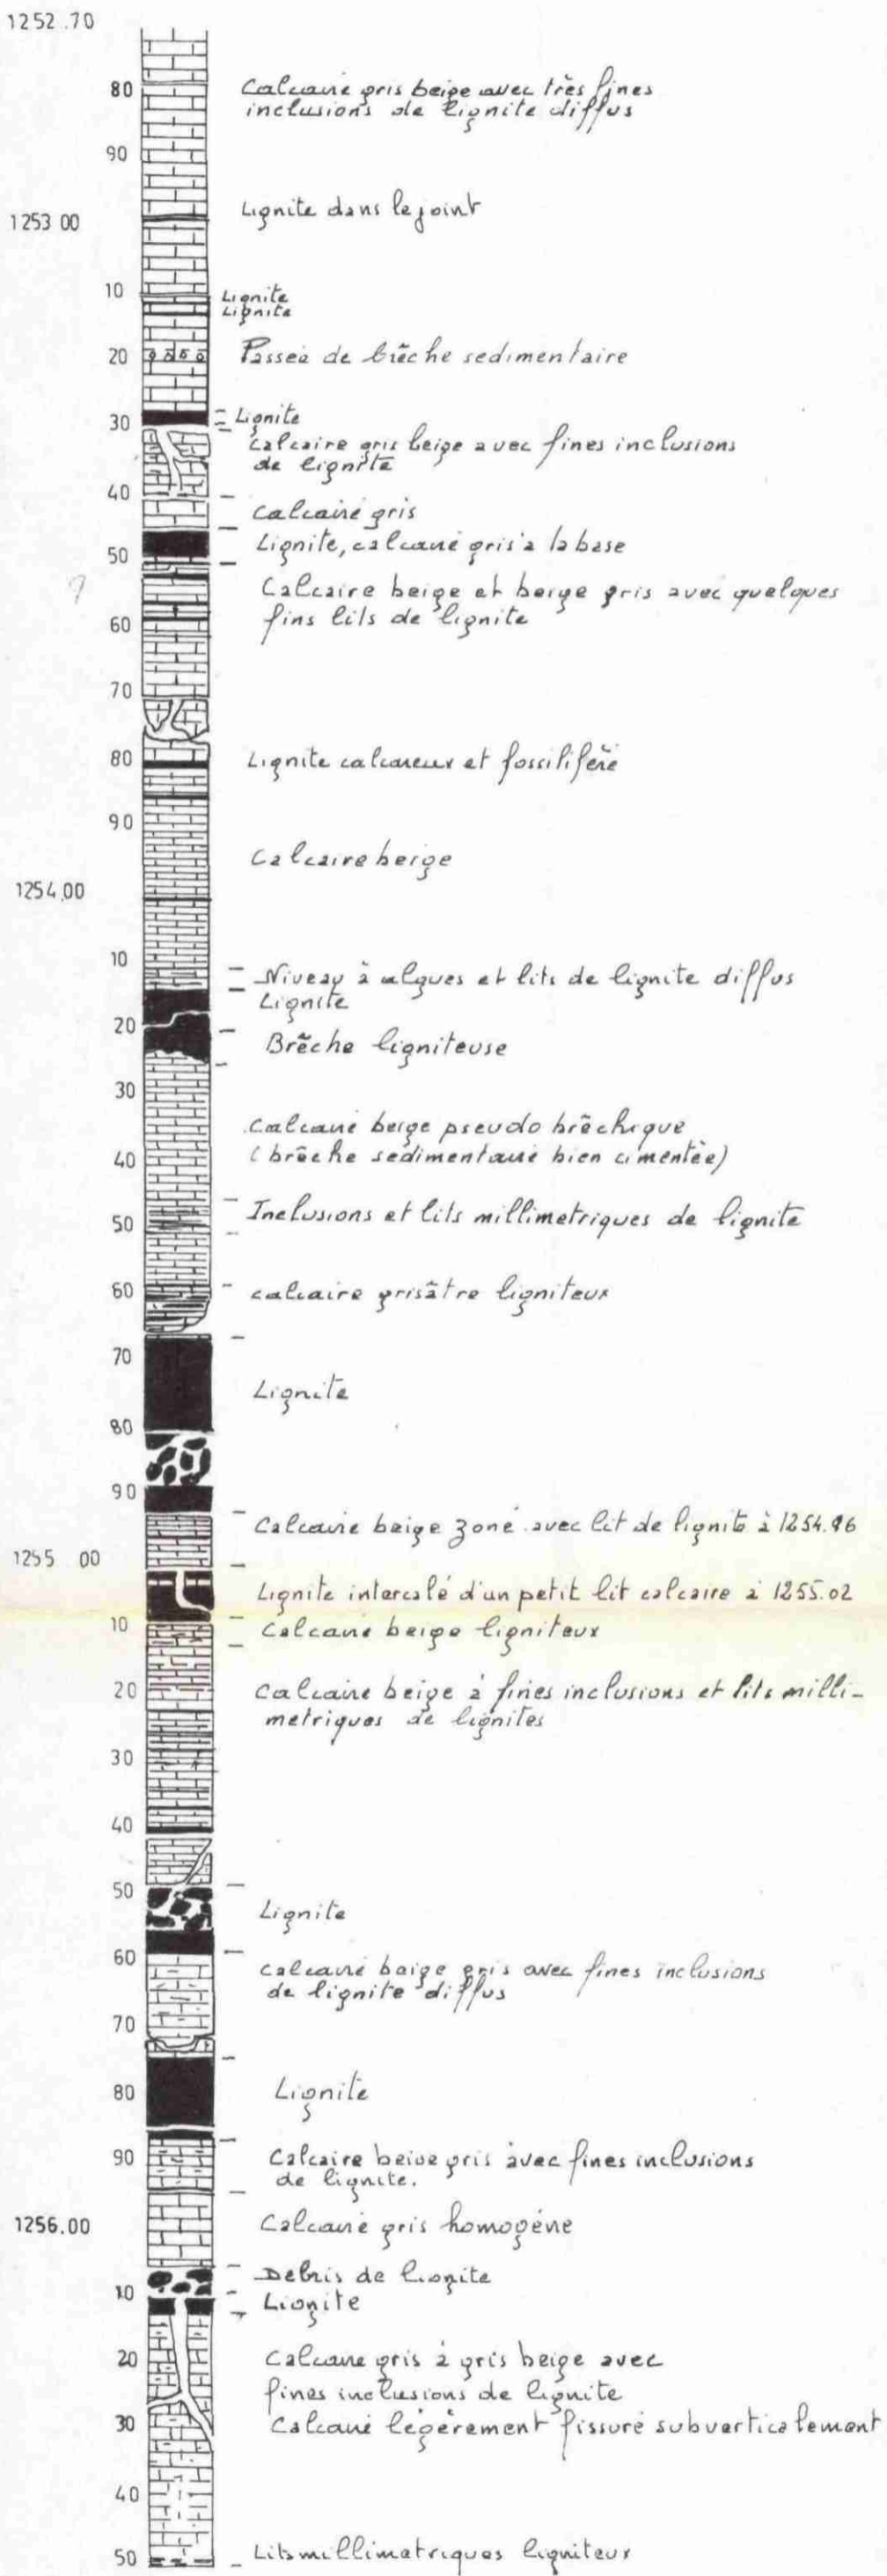 1252.70
80 Calcaire gris beige avec très fines
inclusions de lignite diffus
90
1253 00 Lignite dans le joint
10 Lignite
Lignite
20 Passée de brêche sedimentaire
30 Lignite
Calcaire gris beige avec fines inclusions
de lignite
40
Calcaire gris
50 Lignite, calcaire gris à la base
Calcaire beige et beige gris avec quelques
60 fins lits de lignite
70
80 Lignite calcareux et fossilifère
90
Calcaire beige
1254.00
10
Niveau à algues et lits de lignite diffus
Lignite
20
Brêche ligniteuse
30
Calcaire beige pseudo brêchique
40 (brêche sedimentaire bien cimentée)
50 Inclusions et lits millimetriques de lignite
60 calcaire grisâtre ligniteux
70
Lignite
80
90
Calcaire beige zoné avec lit de lignite à 1254.96
1255 00
Lignite intercalé d'un petit lit calcaire à 1255.02
10 Calcaire beige ligniteux
20 Calcaire beige à fines inclusions et lits milli-
metriques de lignites
30
40
50
Lignite
60
Calcaire beige gris avec fines inclusions
de lignite diffus
70
80 Lignite
90 Calcaire beige gris avec fines inclusions
de lignite.
1256.00 Calcaire gris homogène
Debris de lignite
10 Lignite
20 Calcaire gris à gris beige avec
fines inclusions de lignite
30 Calcaire légèrement fissuré subverticalement
40
50 Lits millimetriques ligniteux